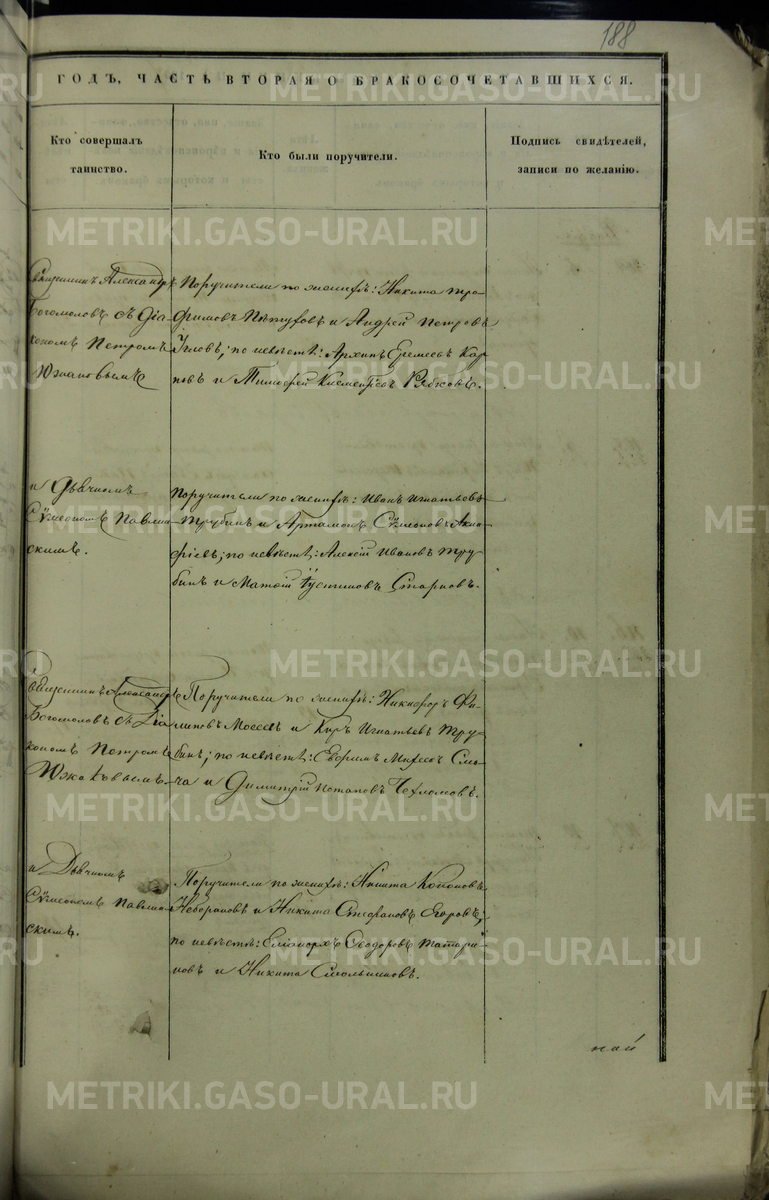 188
ГОДЪ, ЧАСТЬ ВТОРАЯ О БРАКОСОЧЕТАВШИХСЯ.
Кто совершалъ
таинство.
Кто были поручители.
Подпись свидѣтелей,
записи по желанію.
Священникъ Александръ
Богомоловъ съ Діа-
кономъ Петромъ
Поручители по женихѣ: Никита Тро-
фимовъ Пѣтуховъ и Андрей Петровъ
по невѣстѣ: Архипъ Еремеевъ Кар-
повъ и Тимофей Климентьевъ Рябковъ.
и Дьячкомъ
Сѵмеономъ Павлин-
скимъ.
Поручители по женихѣ: Иванъ Игнатьевъ
Трубинъ и Артамонъ Сѵмеоновъ
по невѣстѣ: Алексій Ивановъ Тру-
бинъ и Матѳій Старковъ.
Священникъ Александръ
Богомоловъ съ Діа-
кономъ Петромъ
Поручители по женихѣ: Никифоръ Фи-
липовъ Мосеевъ и Киръ Игнатьевъ Тру-
бинъ; по невѣстѣ: Ефремъ
и Димитрій Потаповъ
и Дьячкомъ
Сѵмеономъ Павлин-
скимъ.
Поручители по женихѣ: Никита Кононовъ
и Никита Стефановъ Егоровъ;
по невѣстѣ: Ѳеодоровъ Татари-
новъ и Никита
METRIKI.GASO-URAL.RU